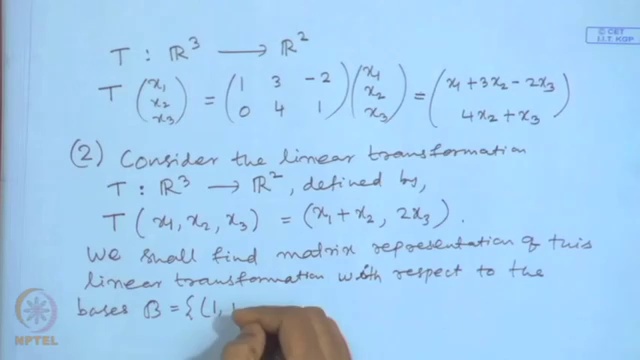 © CET
I.I.T. KGP
T : ℝ³ ⟶ ℝ²
T (x₁ x₂ x₃) = (1 3 -2 0 4 1) (x₁ x₂ x₃) = (x₁ + 3x₂ - 2x₃ 4x₂ + x₃)
(2) Consider the linear transformation
T : ℝ³ ⟶ ℝ², defined by,
T (x₁, x₂, x₃) = (x₁ + x₂, 2x₃) .
We shall find matrix representation of this
linear transformation with respect to the
bases B = {(1, 1
NPTEL